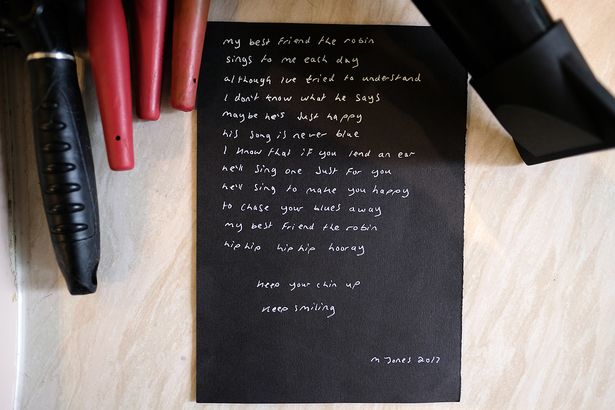 my best friend the robin
sings to me each day
although Ive tried to understand
I don't know what he says
maybe he's Just happy
his song is never blue
I know that if you lend an ear
he'll sing one Just for you
he'll sing to make you happy
to chase your blues away
my best friend the robin
hip hip hip hip hooray
keep your chin up
keep smiling
m Jones 2017